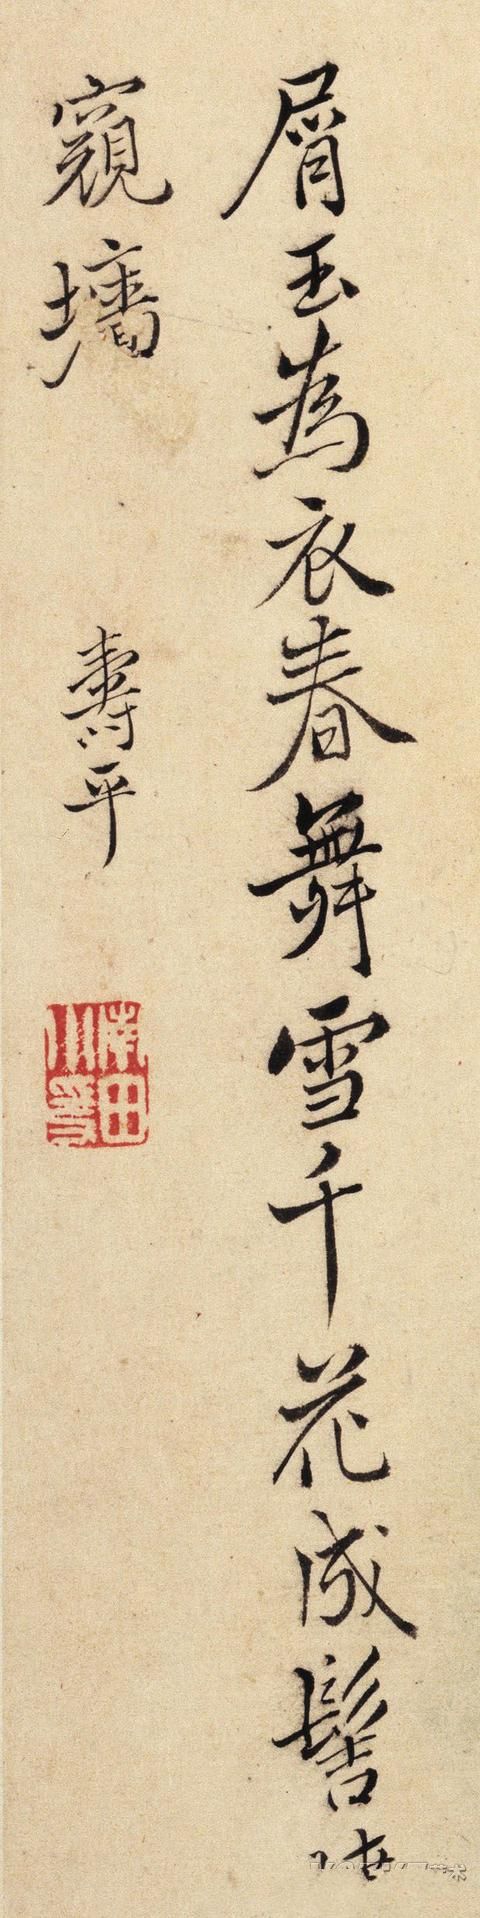 屑玉為衣春舞雪千花成髻
窺墻
壽平